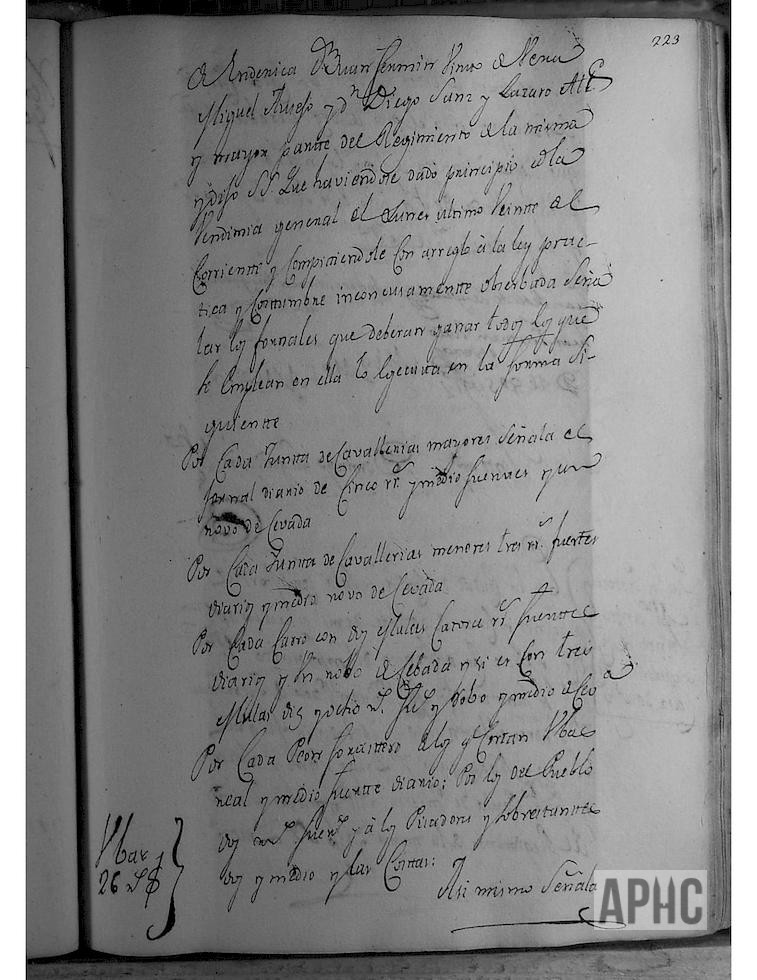 223
Miguel y Dn Diego Sanz y Lazaro
y mayor partte del Regimiento de la misma
y dijo SS. Que haviendose dado principio a la
Vendimia general el Lunes ultimo Veinte del
Corriente y Compitiendole Con arreglo à la ley prac-
tica y Costumbre inconcusamentte observada Seña
lar los Jornales que deberan ganar todos los que
se Emplean en ella lo Egecuta en la forma Si-
guientte
Por Cada Juntta de Cavallerias mayores Señala el
Jornal diario de Cinco rs. y medio fuertes y un
rovo de Cevada
Por Cada Juntta de Cavallerias menores tres rs. fuertes
diarios y medio rovo de Cevada
Por Cada Carro con dos Mulas Catorce rs. fuerttes
diarios y Un robo de Cebada y si es Con tres
Mulas diez y ocho rs. y Robo y medio de Ceva
Por Cada Peon forasttero de los q. Cortan Ubas
real y medio fuertte diario; Por los del Pueblo
dos rs. fuer. y à los Pisadores y Sobrestanttes
dos y medio y las Comttas:
Asi mismo Señala
Ubas y
26 rs
APHC